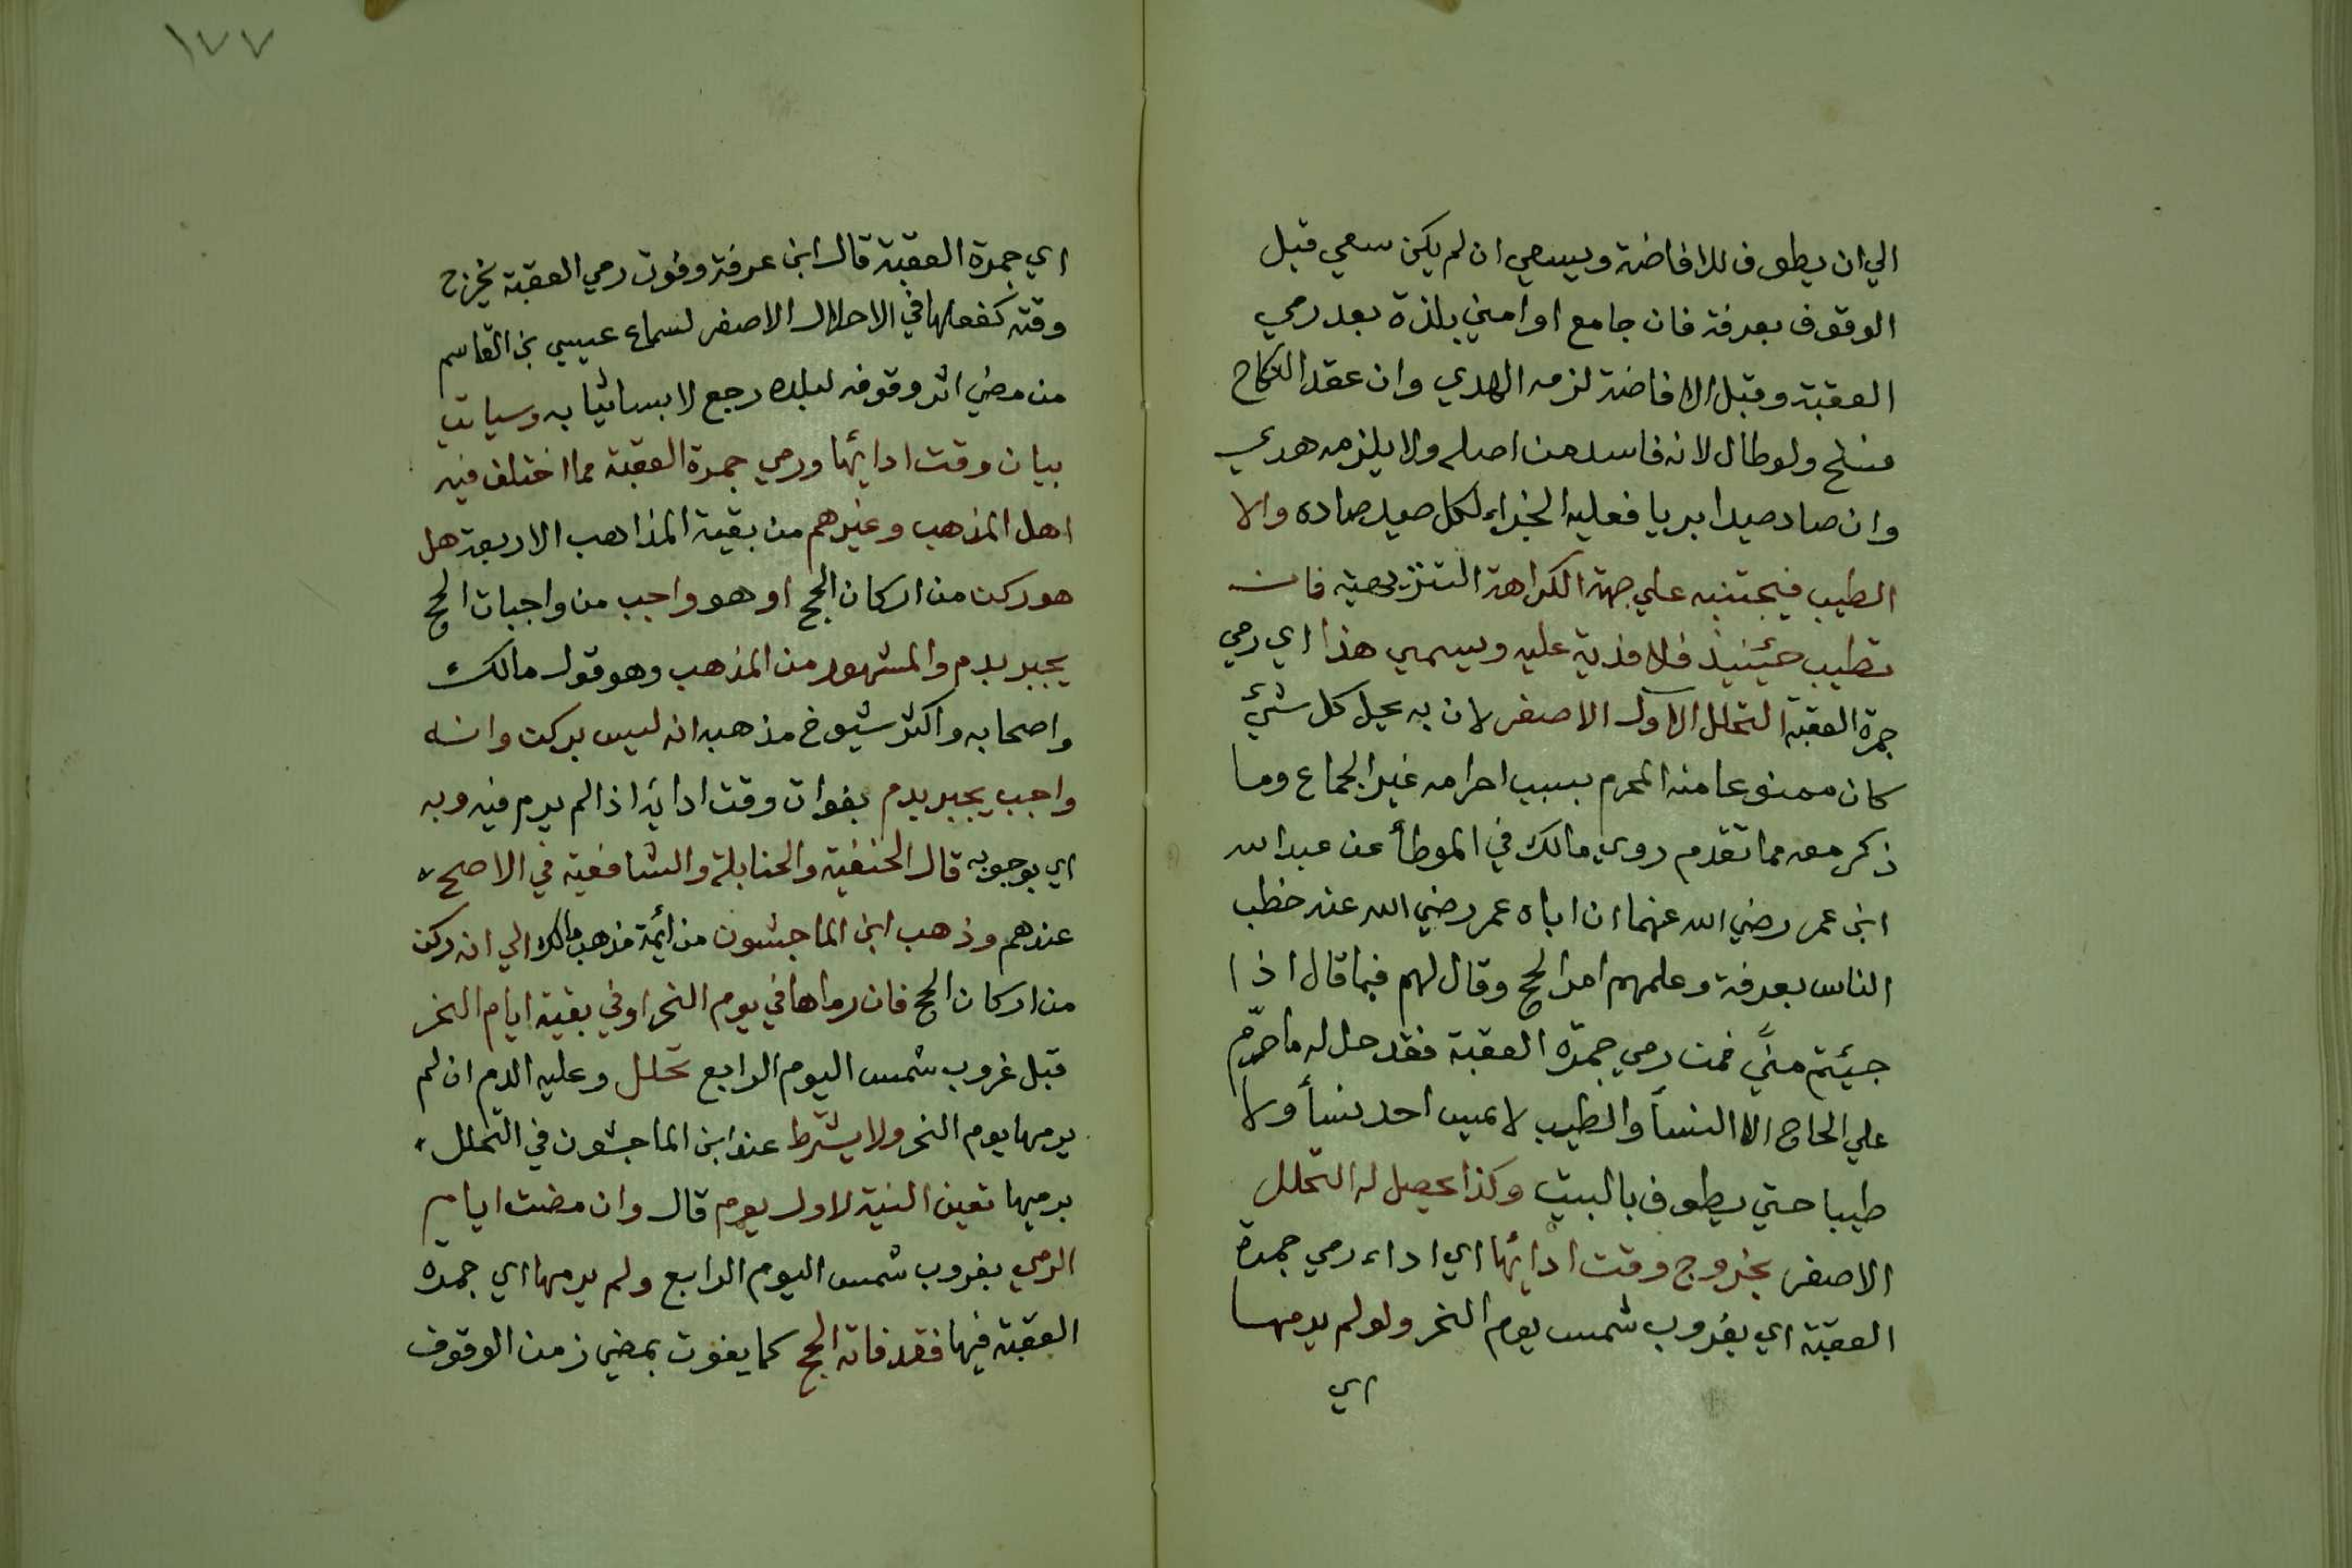 الي ان يطوف للافاضة ويسعي ان لم يكن سعي قبل
الوقوف بعرفة فان جامع او امني بلذة بعد رمي
العقبة وقبل الافاضة لزمه الهدي وان عقد النكاح
فسخ ولو طال لانه فاسد من اصله ولا يلزمه هدي
وان صاد صيدا بريا فعليه الجزاء لكل صيد صاده والا
الطيب فيجتنبه علي جهة الكراهة التنزيهية فان
تطيب حيئنيذ فلا فدية عليه ويسمي هذا اي رمي
جمرة العقبة التحلل الاول الاصغر لان به يحل كل شيئ
كان ممنوعا منه المحرم بسبب احرامه غير الجماع وما
ذكر معه مما تقدم روي مالك في الموطأ عن عبد الله
ابن عمر رضي الله عنهما ان اباه عمر رضي الله عنه خطب
الناس بعرفة وعلمهم امر الحج وقال لهم فيما قال اذا
جيئتم مني فمن رمي جمرة العقبة فقد حل له ما حرّم
علي الحاج الا النسأ والطيب لا يميس احد نسأ ولا
طيبا حتي يطوف بالبيت وكذا يحصل له التحلل
الاصغر بخروج وقت ادائها اي اداء رمي جمرة
العقبة اي بغروب شمس يوم النحر ولو لم يرمها
اي
١٧٧
اي جمرة العقبة قال ابن عرفة وفوت رمي العقبة بخرج
وقته كفعلها في الاحلال الاصغر لسماع عيسي بن القاسم
من مضي اثر وقوفه لبلده رجع لابسا ثيابه وسياتي
بيان وقت ادائها ورمي جمرة العقبة مما اختلف فيه
اهل المذهب وغيرهم من بقية المذاهب الاربعة هل
هو ركن من اركان الحج او هو واجب من واجبات الحج
يجبر بدم والمشهور من المذهب وهو قول مالك
واصحابه واكثر شيوخ مذهبه انه ليس بركن وانه
واجب يجبر بدم بفوات وقت ادائه اذا لم يرم فيه وبه
اي بوجوبه قال الحنفية والحنابلة والشافعية في الاصح
عندهم وذهب ابن الماجشون من أئمة مذهب مالك الي انه ركن
من اركان الحج فان رماها في يوم النحر او في بقية ايام النحر
قبل غروب شمس اليوم الرابع تحلل وعليه الدم ان لم
يرمها يوم النحر ولا يشترط عند ابن الماجشون في التحلل
برميها تعين النية لاول يوم قال وان مضت ايام
الرمي بغروب شمس اليوم الرابع ولم يرمها اي جمرة
العقبة فيها فقد فاته الحج كما يفوت بمضي زمن الوقوف